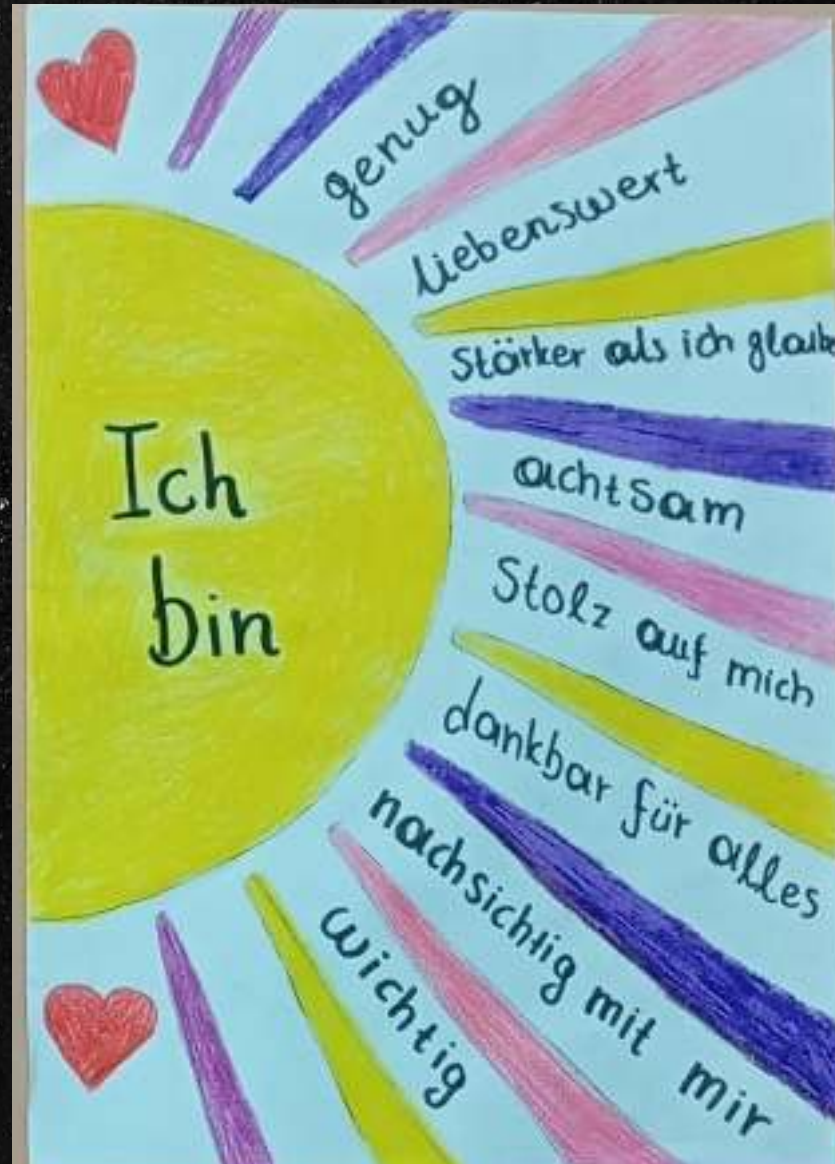 Ich
bin
genug
liebenswert
Stärker als ich glaube
achtsam
Stolz auf mich
dankbar für alles
nachsichtig mit mir
wichtig